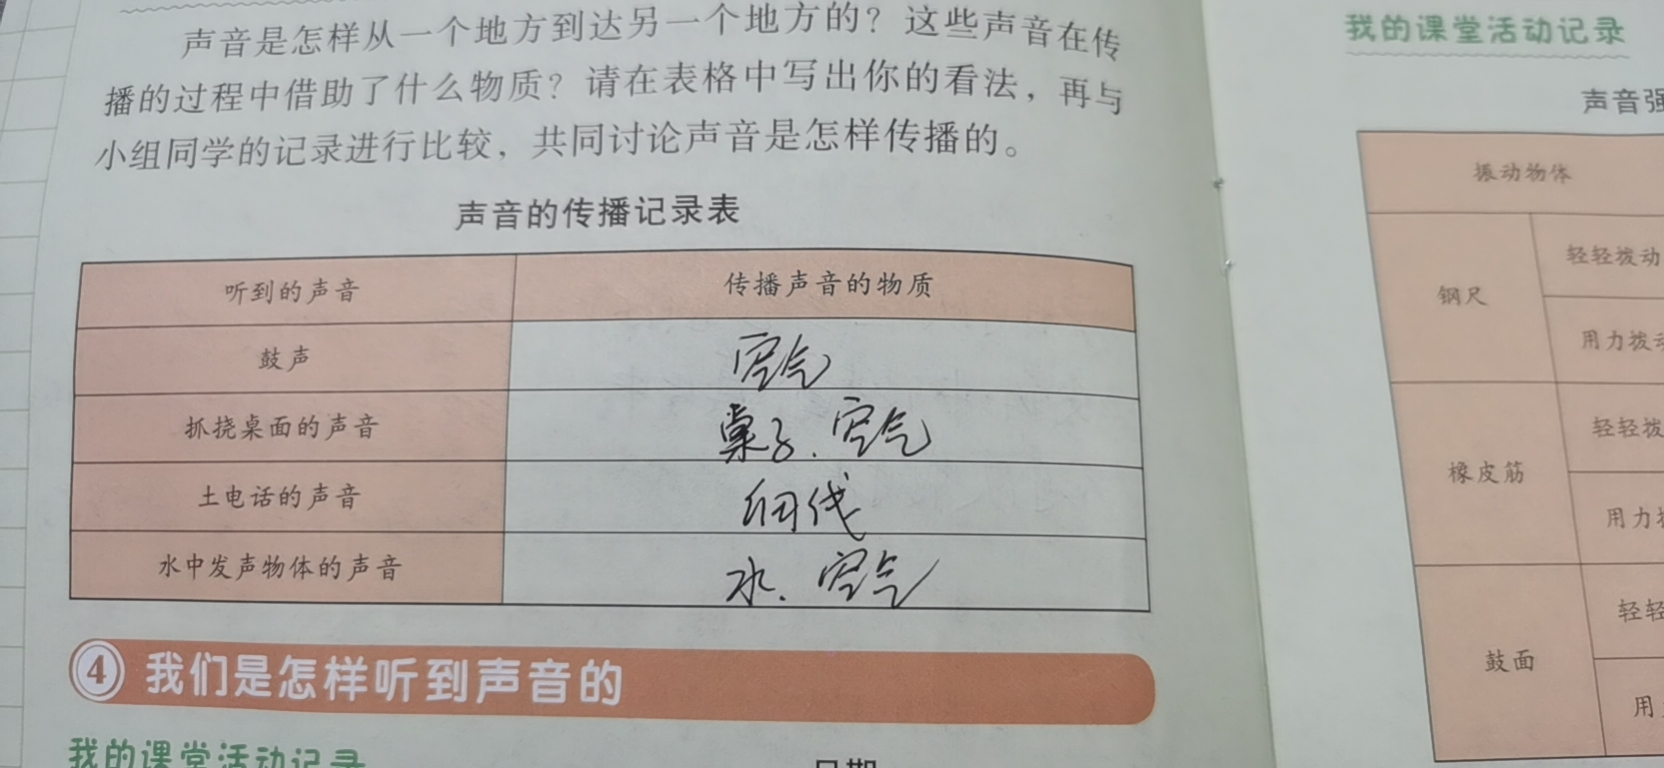 声音是怎样从一个地方到达另一个地方的？这些声音在传
播的过程中借助了什么物质？请在表格中写出你的看法，再与
小组同学的记录进行比较，共同讨论声音是怎样传播的。
声音的传播记录表
听到的声音 传播声音的物质
鼓声 空气
抓挠桌面的声音 桌子、空气
土电话的声音 细线
水中发声物体的声音 水、空气
4 我们是怎样听到声音的
我的课堂活动记录
日期
我的课堂活动记录
声音强
振动物体
钢尺
轻轻拨动
用力拨动
橡皮筋
轻轻拨
用力
鼓面
轻轻
用